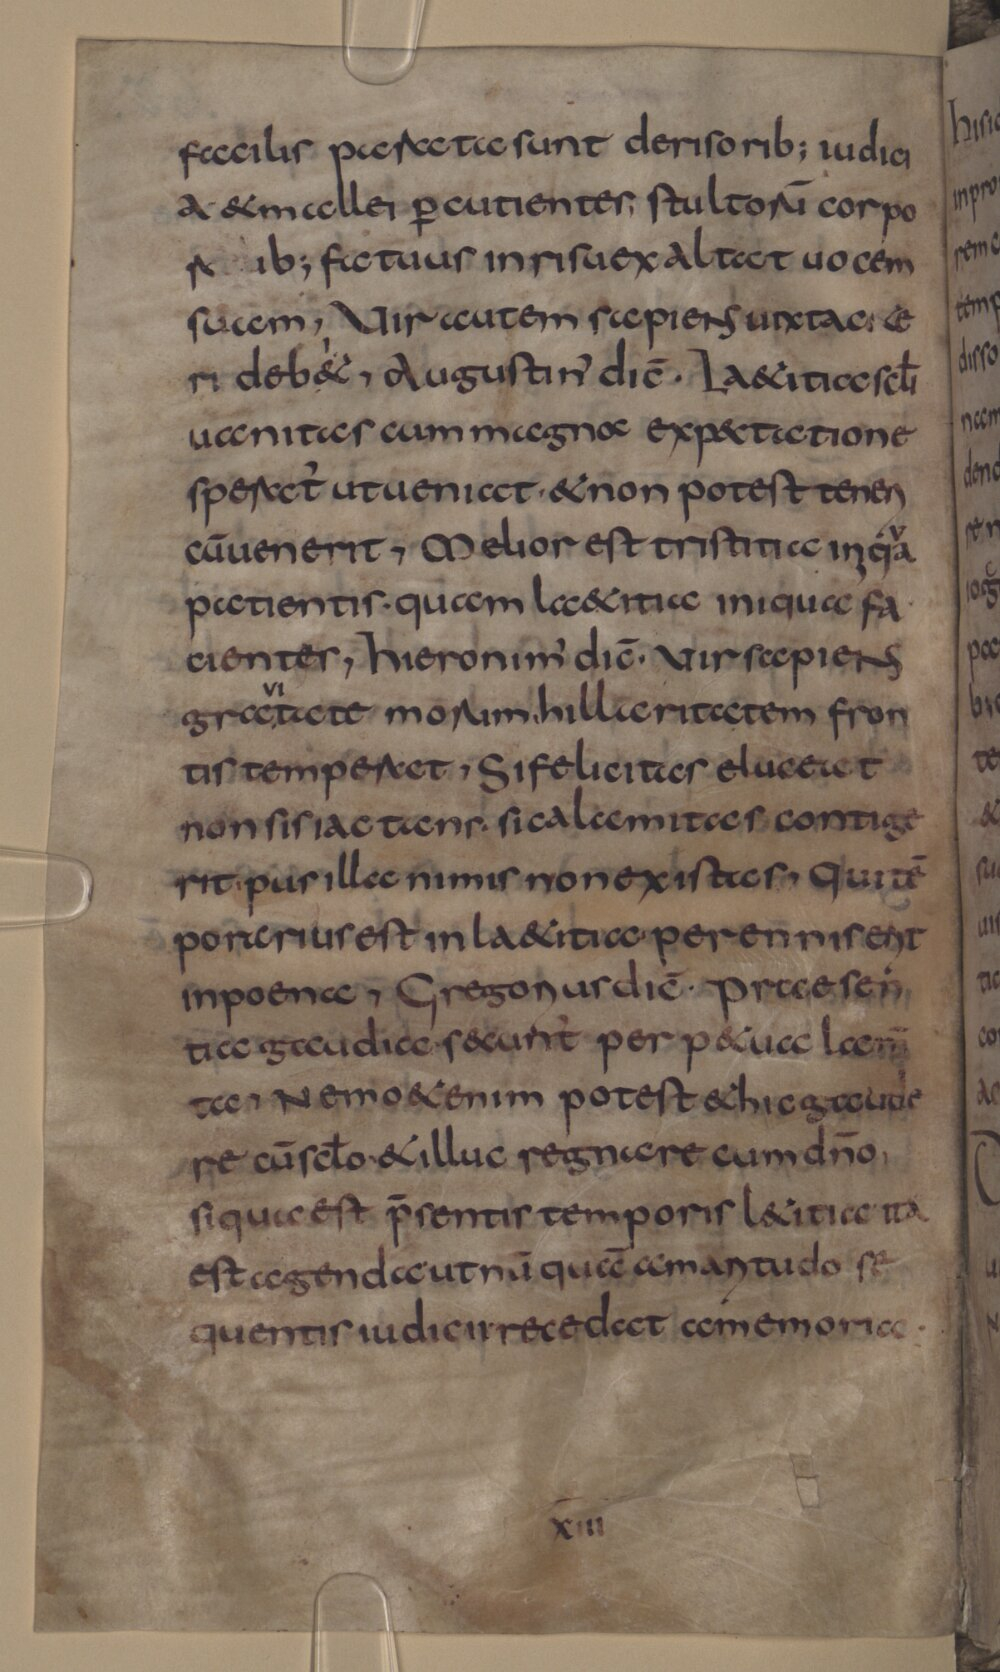 facilis parata sunt derisorib; iudici
a & mallei ꝑcutientes, stultorū corpo
r ib; fatuus in risu exaltat uocem
suam, Vir autem sapiens uix tacite
ri deb&, Augustin' dic̄. La&itia scłi
uanitas cum magna exp&tatione
sperat' ut ueniat · & non potest teneri
cū uenerit, Melior est tristitia iniq̇ͮa
patientis · quam la&itia iniqua fa
cientes, hieronim' dic̄. Vir sapiens
grauitate morum hillaritatem fron
tis temperat, Si felicitas eluceat
non sis iactans · si calamitas contige
rit · pusilla nimis non existas, Qui tē
poraríus est in la&itia · perennis erit
in poena, Gregorius dic̄. Praesen
tia gaudia secunt' perp&ua lamn̄
ta, Nemo &enim potest & hic gaude
re cū scło · & illuc regnare cum dn̄o,
si qua est p̄sentis temporis l&itia ita
est agenda ut nū quā amaritudo se
quentis iudicii recedat a memoria ·
x̄iii
hisi
inpro
rem
temp
disso
nam
den